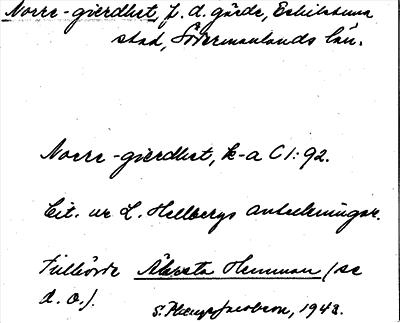 Norre-gierdhet, f. d. gärde, Eskilstuna
stad, Södermanlands län.
Norre-gierdhet, k-a C 1:92.
Cit. ur L. Hellbergs anteckningar.
Tillhörde Åkersta Hemman (se
d. o.).
S. Jacobson, 1943.